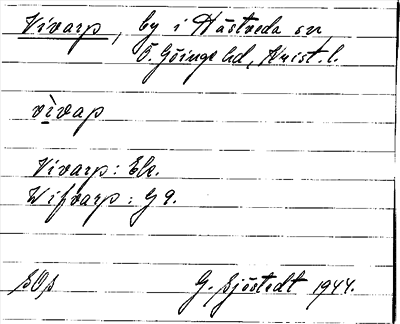 Vivarp, by i Hästveda sn,
Ö. Göinge hd, Krist. l.
vivap
Vivarp: Ek.
Wifvarp: G 9.
SOS G. Sjöstedt 1944.